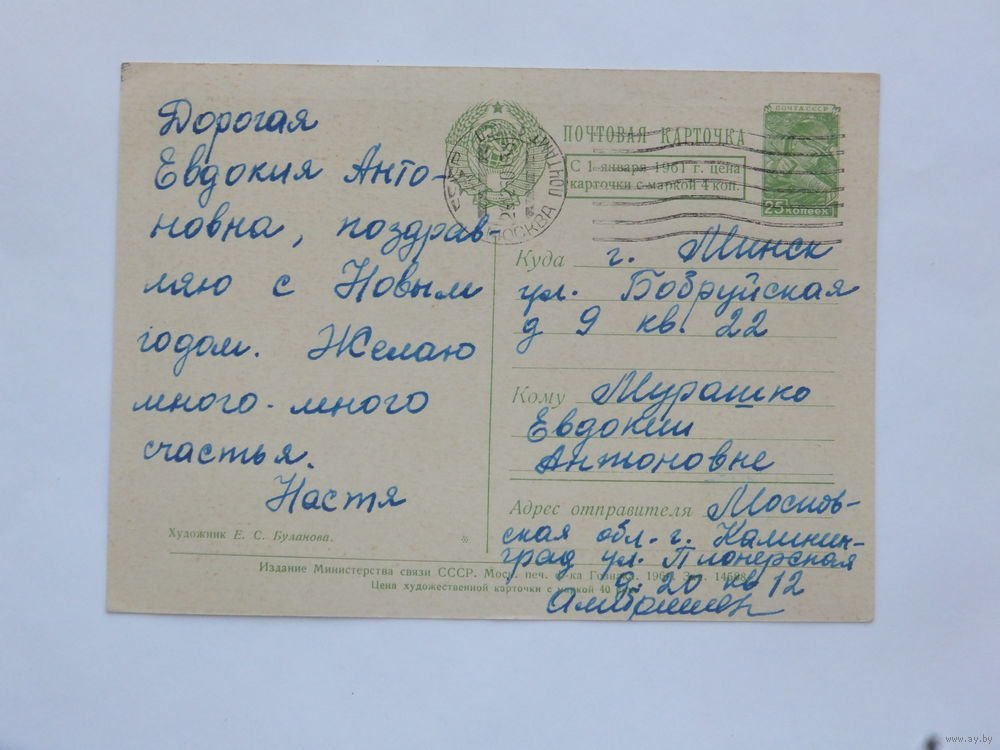 Дорогая
Евдокия Анто-
новна, поздрав-
ляю с Новым
годом. Желаю
много-много
счастья.
Настя
Художник Е. С. Буланова.
ПОЧТА СССР
25 копеек
ПОЧТОВАЯ КАРТОЧКА
С 1 января 1961 г. цена
карточки с маркой 4 коп.
МОСКВА ПОЧТАМТ
Куда г. Минск
ул. Бобруйская
д 9 кв. 22
Кому Мурашко
Евдокии
Антоновне
Адрес отправителя Москов-
ская обл. г. Калинин-
град ул. Пионерская
д. 20 кв 12
Издание Министерства связи СССР. Моск. печ. ф-ка Гознака. 1960. Зак.
Цена художественной карточки с маркой 40 коп.
www.ay.by